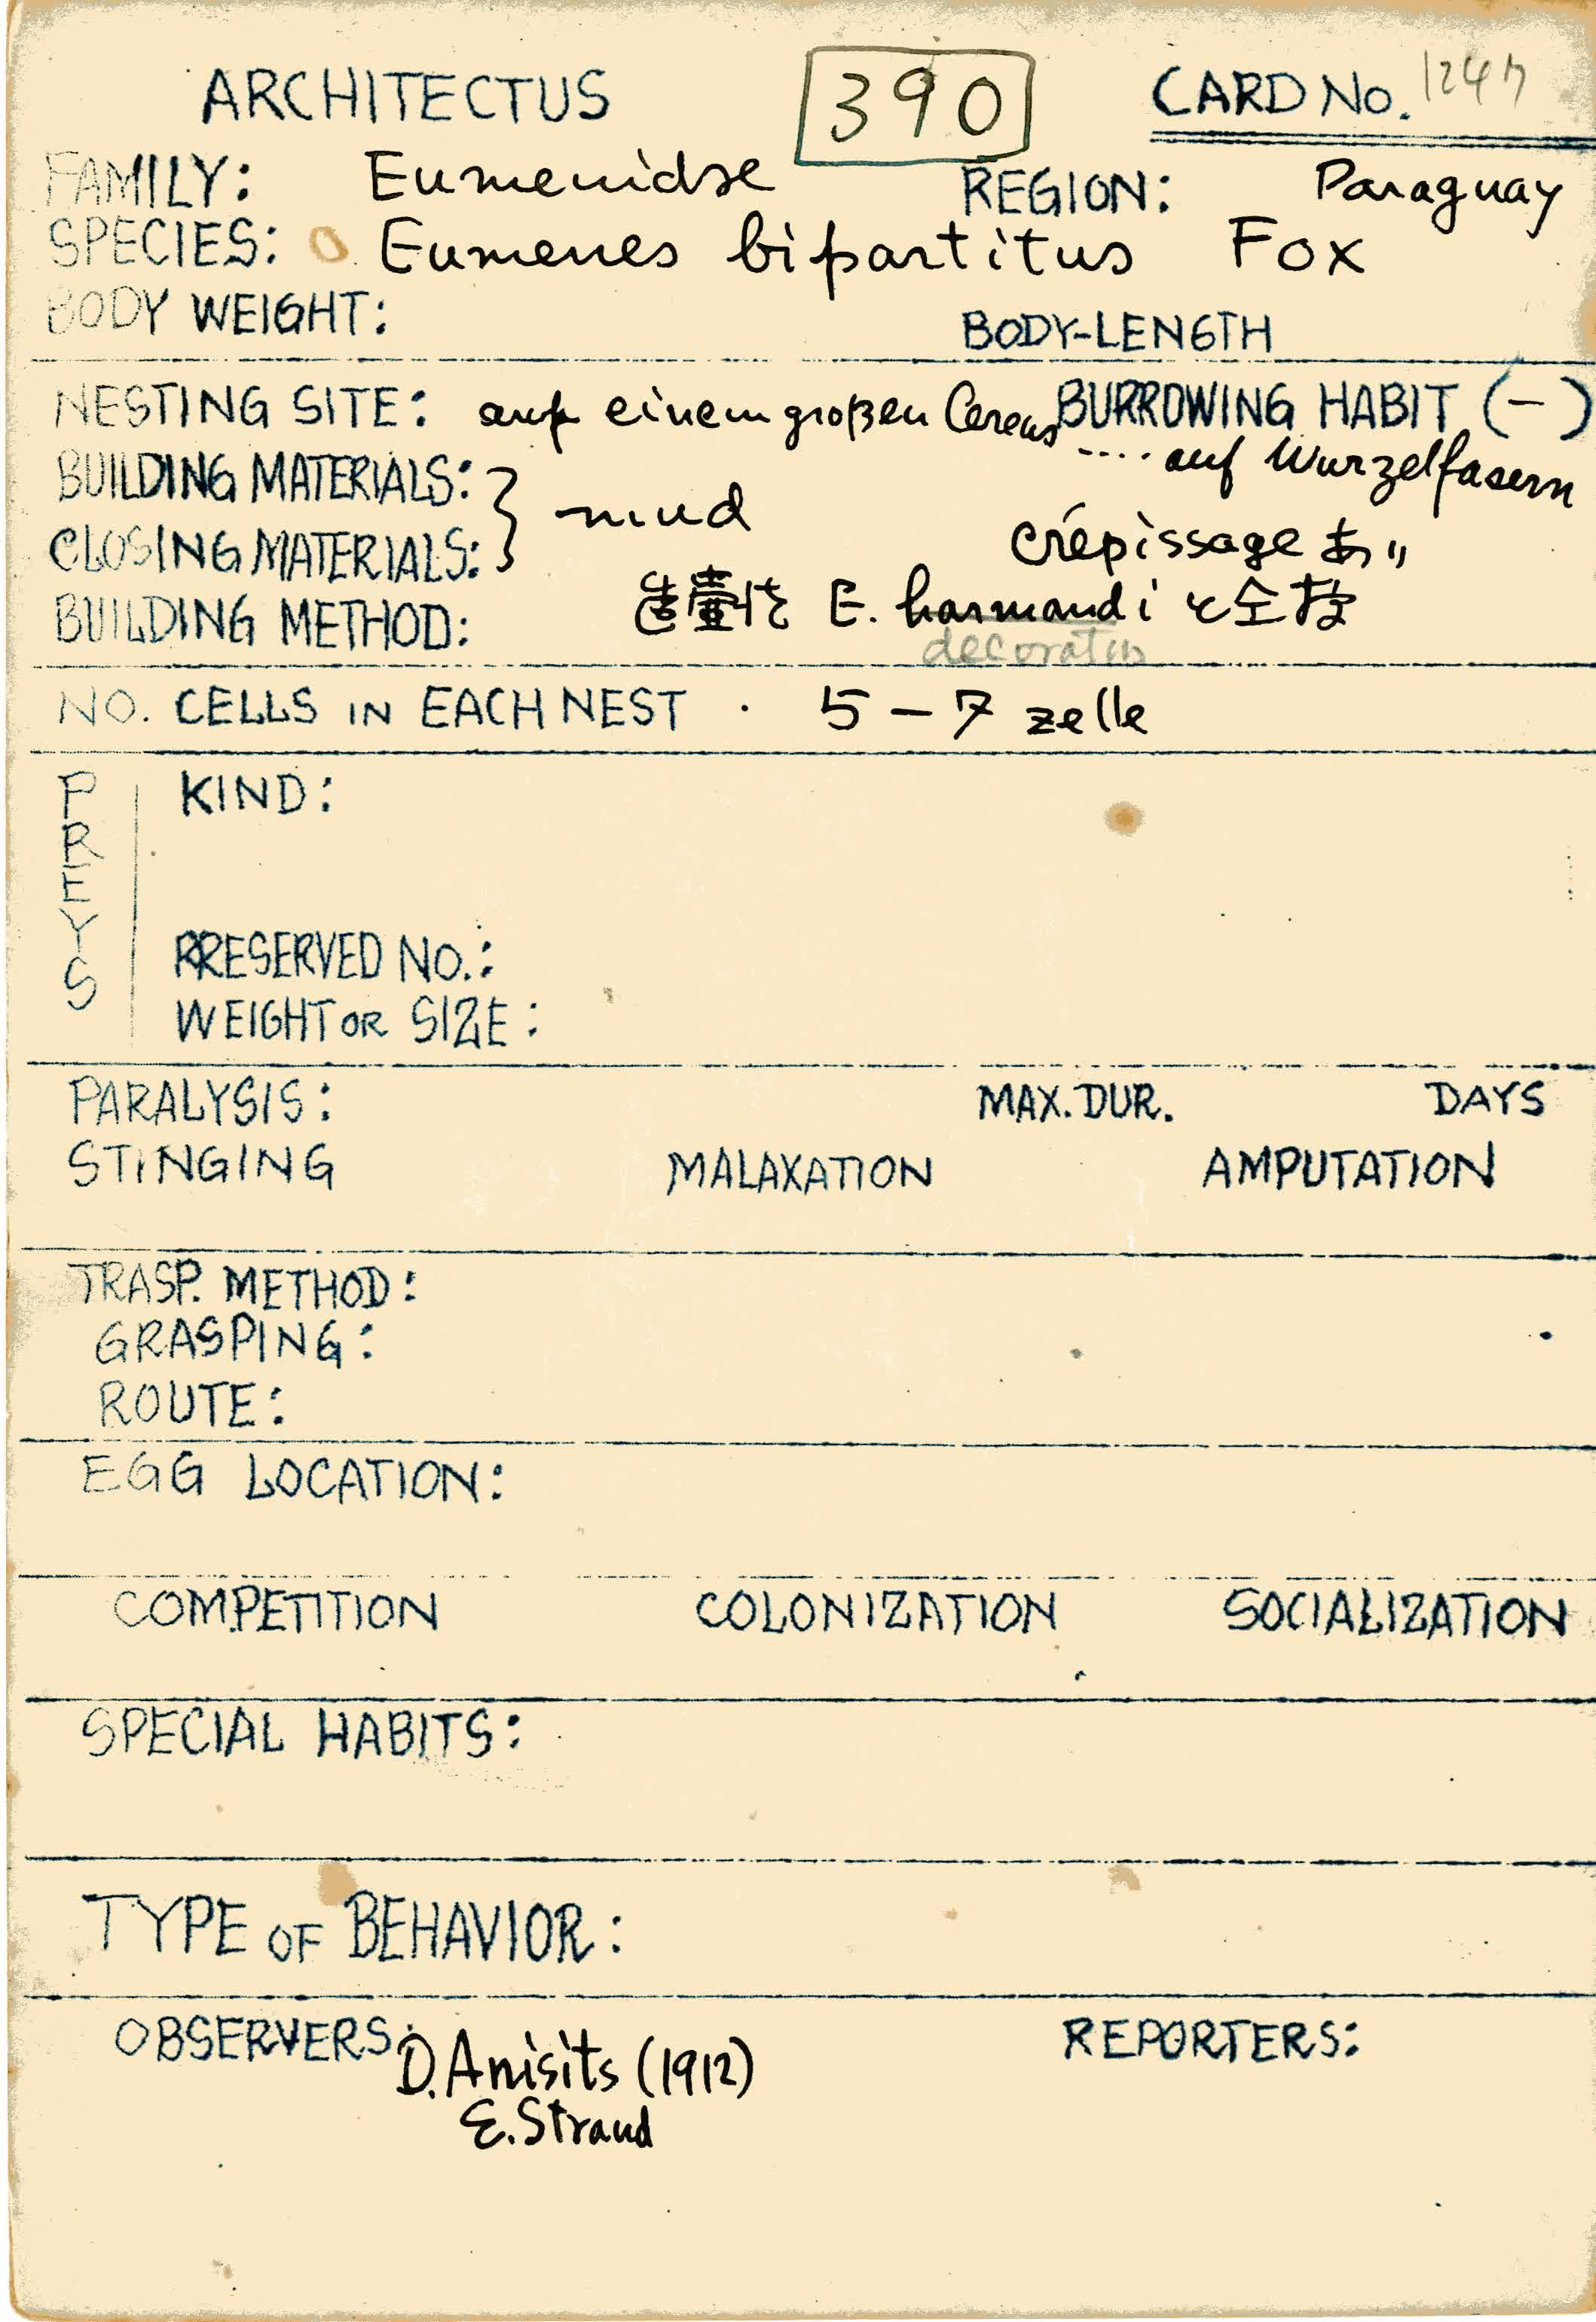 ARCHITECTUS 390 CARD No. 1247
FAMILY: Eumenidae REGION: Paraguay
SPECIES: Eumenes bipartitus Fox
BODY WEIGHT: BODY-LENGTH
NESTING SITE: auf einem großen Cereus BURROWING HABIT (-)
.... auf Wurzelfasern
BUILDING MATERIALS: } mud
CLOSING MATERIALS: crépissage あり
BUILDING METHOD: 造壷性 E. harmandi と全
decoratus
NO. CELLS IN EACH NEST . 5-7 zelle
PREYS
KIND:
PRESERVED NO.:
WEIGHT OR SIZE:
PARALYSIS: MAX. DUR. DAYS
STINGING MALAXATION AMPUTATION
TRASP. METHOD:
GRASPING:
ROUTE:
EGG LOCATION:
COMPETITION COLONIZATION SOCIALIZATION
SPECIAL HABITS:
TYPE OF BEHAVIOR:
OBSERVERS: D. Anisits (1912) REPORTERS:
E. Strand